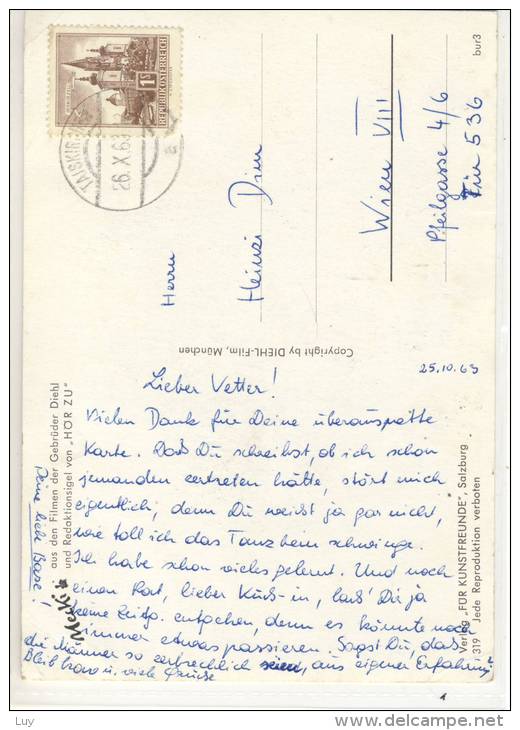 TAISKIR
26.X.63
a
1S
REPUBLIK ÖSTERREICH
bur3
Herrn
Heinzi Dim
Wien VIII
Pfeilgasse 4/6
Tür 536
Copyright by DIEHL-Film, München
25.10.63
Lieber Vetter!
Vielen Dank für Deine überauspatte
Karte. Daß Du schreibst, ob ich schon
jemanden zertreten hätte, stört mich
eigentlich, denn Du weißt ja gar nicht,
wie toll ich das Tanzbein schwinge.
Ich habe schon vieles gelernt. Und noch
einen Rat, lieber Kuds-in, laß' Dir ja
keine Zeitg. entgehen, denn es könnte noch
immer etwas passieren. Sagst Du, daß
die Männer so zerbrechlich seien, aus eigener Erfahrung?
Bleib brav u. viele Grüsse
Deine liebe Base!
aus den Filmen der Gebrüder Diehl
und Redaktionsigel von „HÖR ZU"
Verlag „FÜR KUNSTFREUNDE", Salzburg
319 Jede Reproduktion verboten
Luy
www.delcampe.net